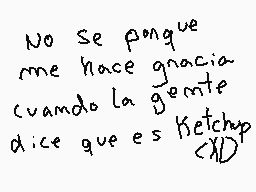 No se porque
me hace gracia
cuando la gemte
dice que es Ketchup
XD